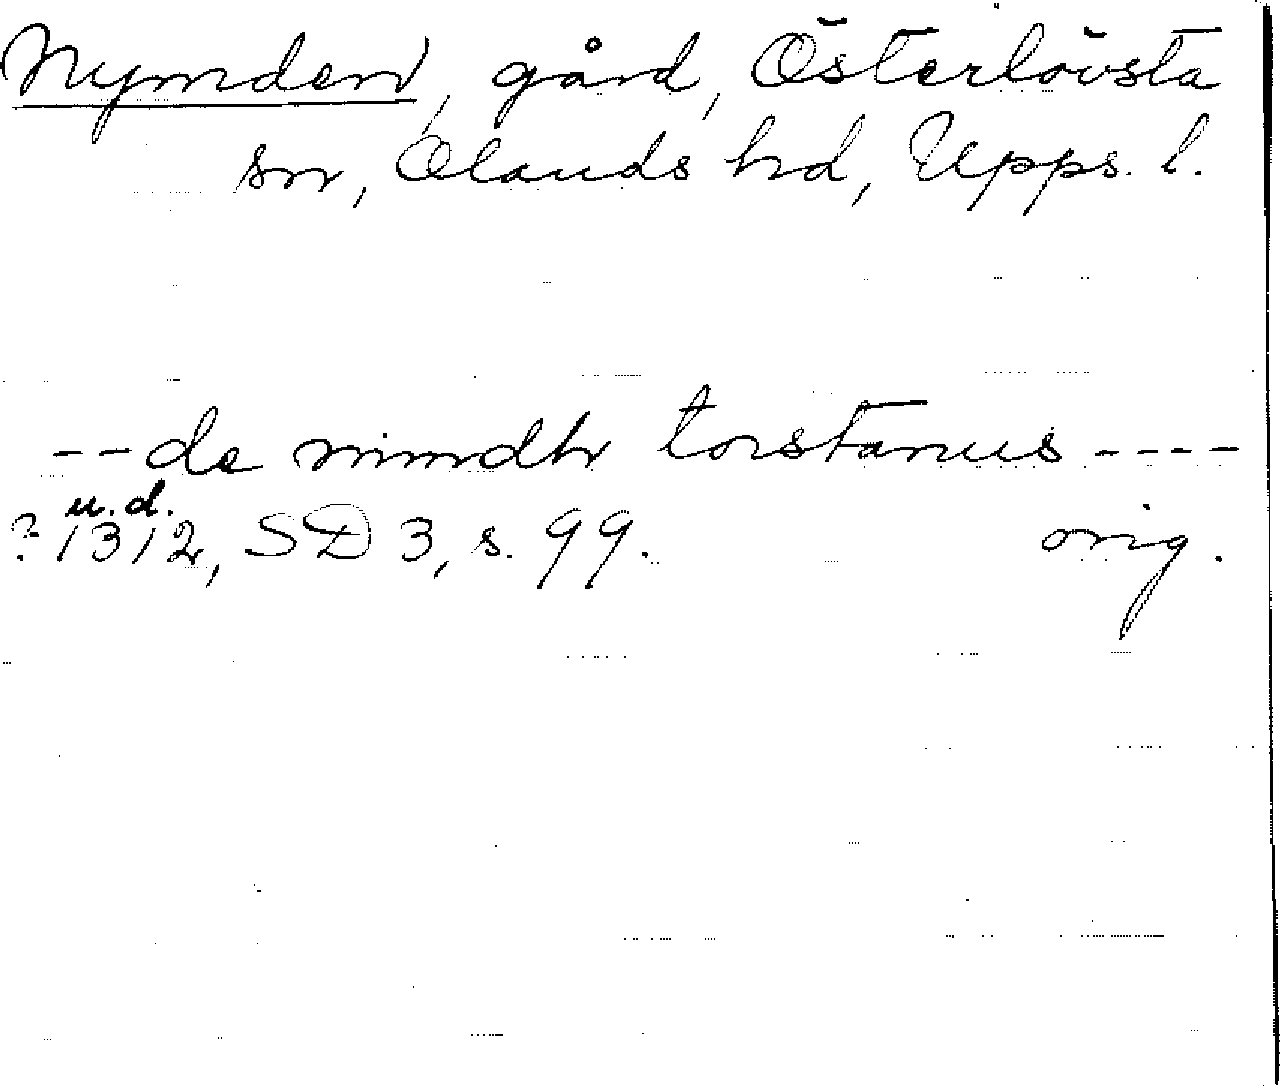 Nymden, gård, Österlövsta
sn, Olands hd, Upps. l.
-- de nimdh torstanus ----
u.d.
? 1312, SD 3, s. 99. orig.